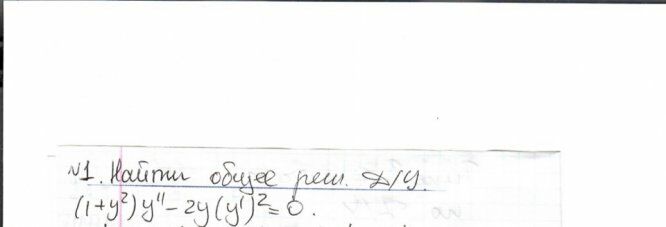 №1. Найти общее реш. Д/У.
(1+y²)y'' - 2y(y')² = 0.